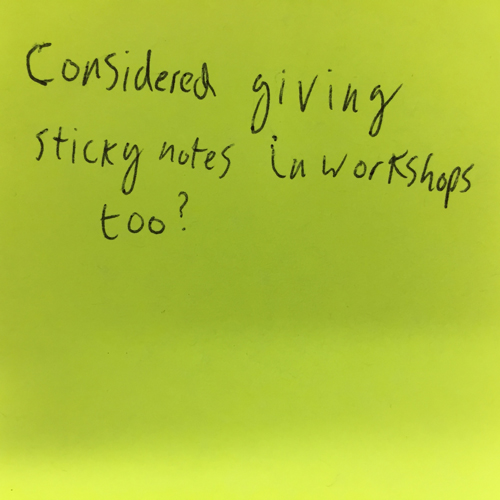 Considered giving
sticky notes in workshops
too?